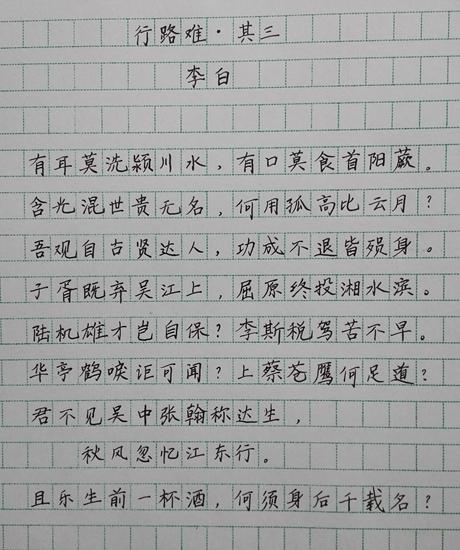 行路难·其三
李白
有耳莫洗颍川水，有口莫食首阳蕨。
含光混世贵无名，何用孤高比云月？
吾观自古贤达人，功成不退皆殒身。
子胥既弃吴江上，屈原终投湘水滨。
陆机雄才岂自保？李斯税驾苦不早。
华亭鹤唳讵可闻？上蔡苍鹰何足道？
君不见吴中张翰称达生，
秋风忽忆江东行。
且乐生前一杯酒，何须身后千载名？